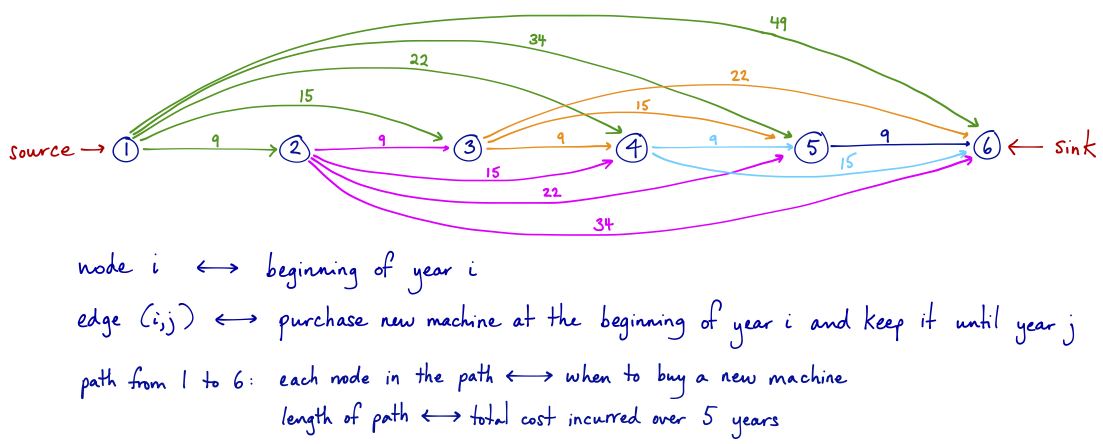 49
34
22
22
15
15
source → 1 9 2 9 3 9 4 9 5 9 6 ← sink
15
15
22
34
node i ↔ beginning of year i
edge (i,j) ↔ purchase new machine at the beginning of year i and keep it until year j
path from 1 to 6: each node in the path ↔ when to buy a new machine
length of path ↔ total cost incurred over 5 years